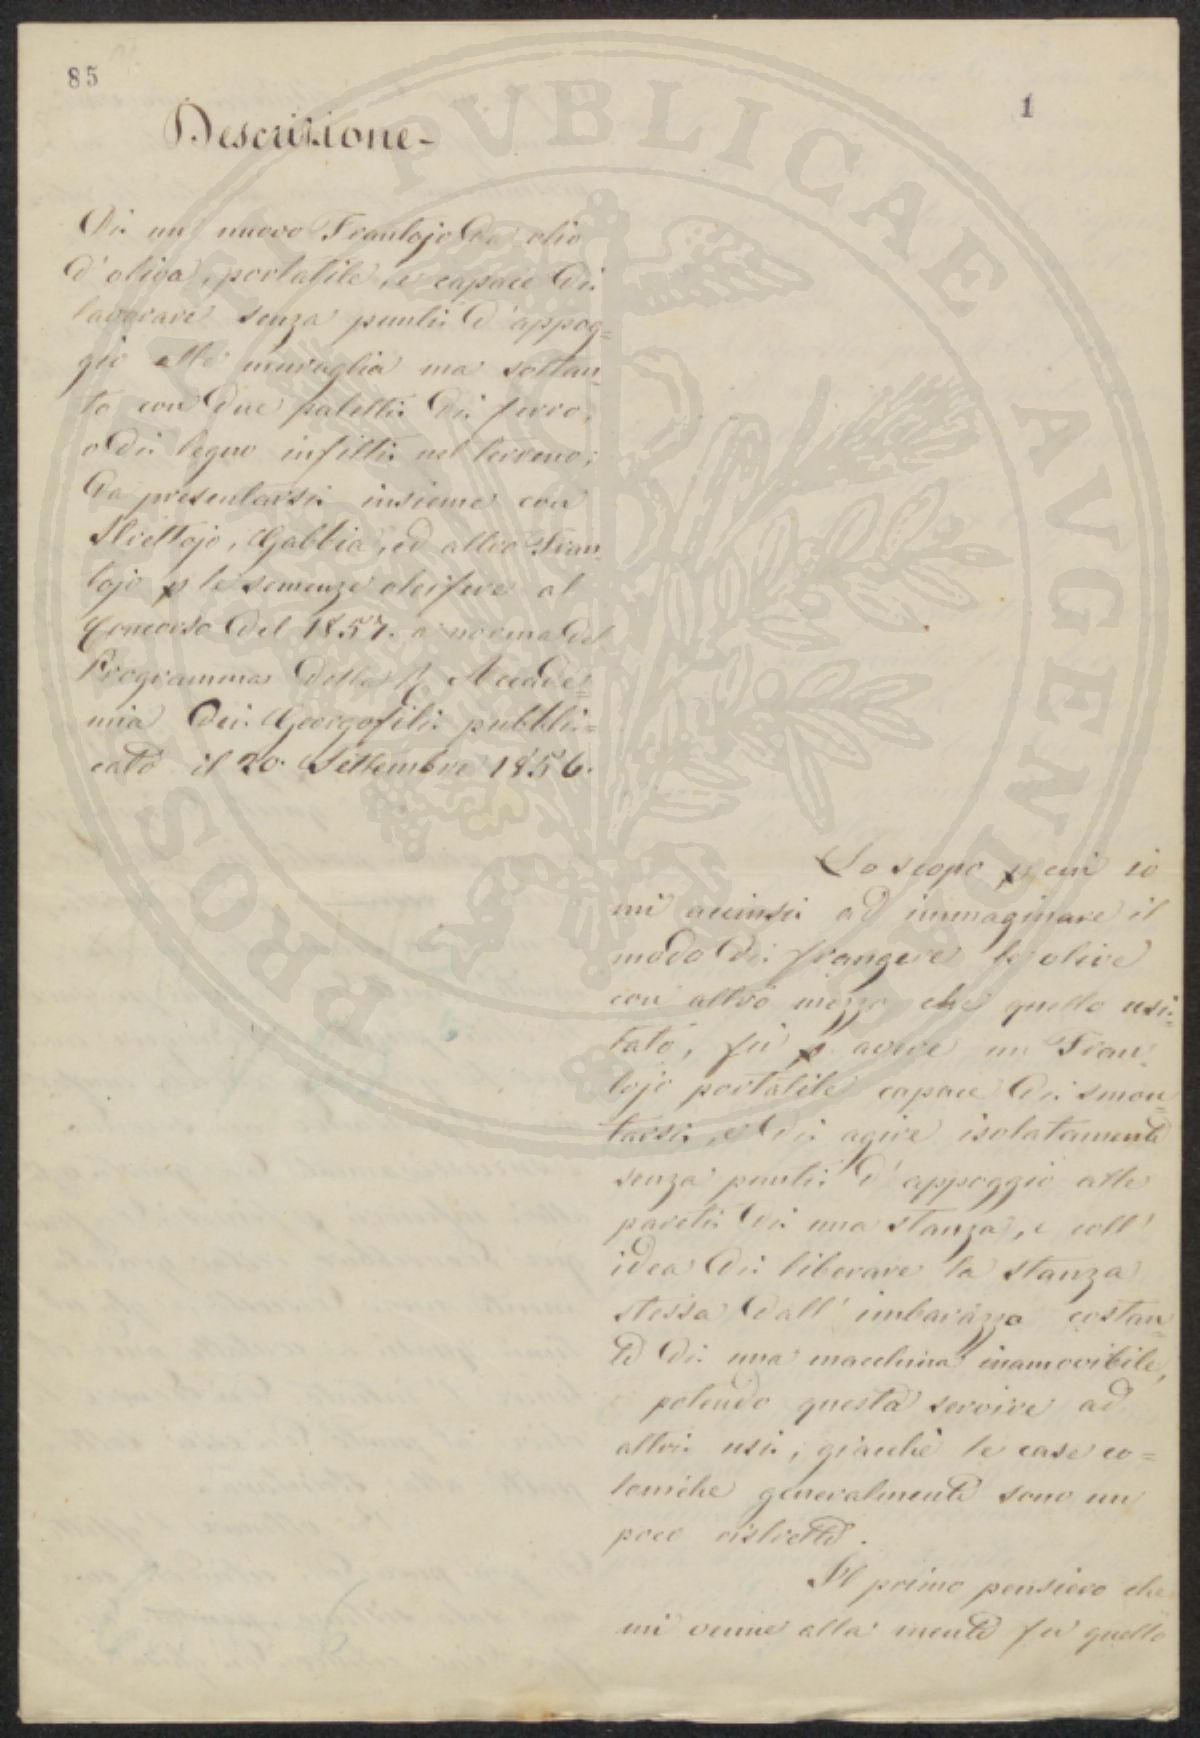 85
1
Descrizione-
Di un nuovo Frantojo da olio
d'oliva, portatile, e capace di
lavorare senza punti d'appog=
gio alle muraglia ma soltan=
to con due paletti di ferro,
o di legno infitti nel terreno;
da presentarsi insieme con
Strettojo, Gabbia, ed altro Fran
tojo p le semenze oleifere al
Concorso del 1857. a norma del
Programma della R. Accade=
mia dei Georgofili pubbli=
cato il 20. Settembre 1856.
Lo scopo p cui io
mi accinsi ad immaginare il
modo di frangere le olive
con altro mezzo che quello usi=
tato, fù p avere un Fran
tojo portatile capace di smon=
tarsi, e di agire isolatamente
senza punti d'appoggio alle
pareti di una stanza, e coll'
idea di liberare la stanza
stessa dall'imbarazzo costan=
te di una macchina inamovibile,
potendo questa servire ad
altri usi, giacchè le case co=
loniche generalmente sono un
poco ristrette.
Il primo pensiero che
mi venne alla mente fu quello
PROSPERITATI PVBLICAE AVGENDAE